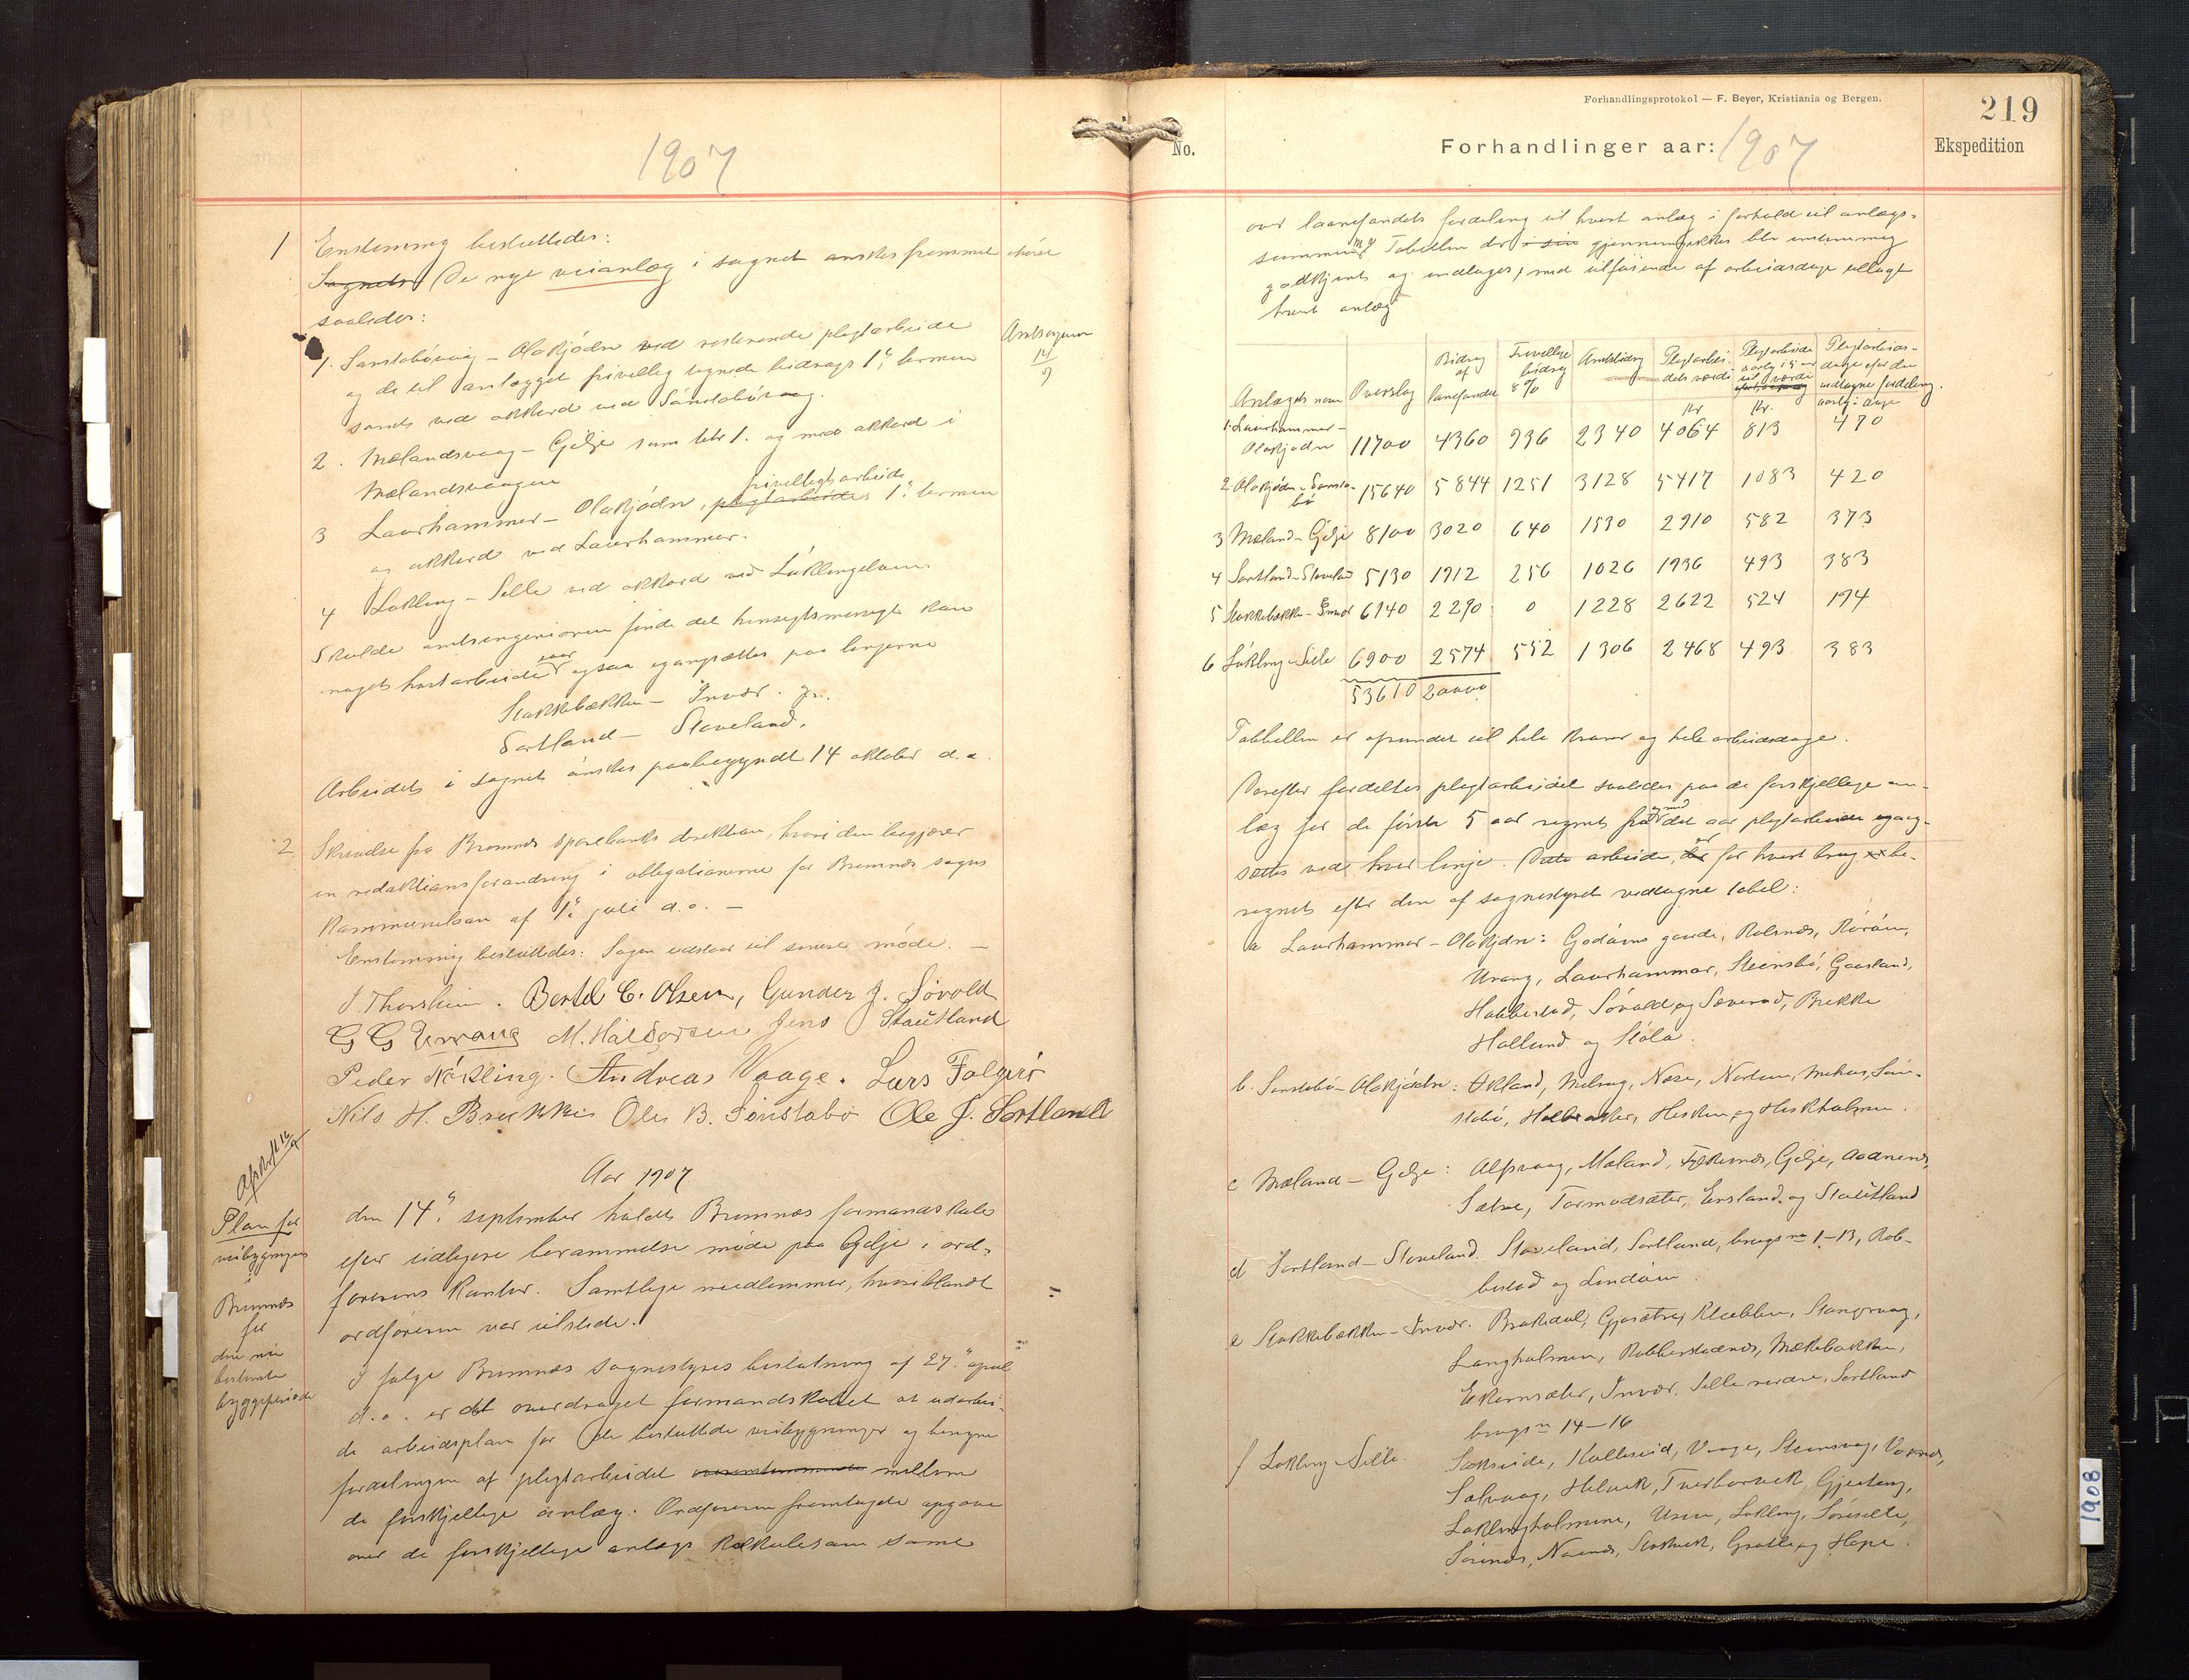 1907
1 Enstemmig besluttedes:
Sagnets De nye veianlæg i sognet ønskes fremmet i høst
saaledes:
1. Sønstabøvaag – Olakjødn ved resterende pligtarbeide
og de til anlægget frivillig tegnede bidrags 1ste termin
samt ved akkord ved Sønstabøvaag.
Amtsingeniør
14/9
2. Mælandsvaag – Gilje som litr 1. og med akkord i
Mælandsvaagen
frivilligt arbeide
3 Laurhammer – Olakjødn, pligtarbeides 1ste termin
og akkord ved Laurhammer.
4 Løkling – Selle ved akkord ved Løklingelven.
Skulde amtsingeniøren finde det hensigtsmessigt kan
noget høstarbeide ogsaa igangsættes paa linjerne
Stokkebækken – Invær. og
Sortland – Staveland.
Arbeidet i sognet ønskes paabegyndt 14 oktober d.a.
2 Skrivelse fra Bremnes sparebanks direktion, hvori den begjærer
en redaktionsforandring i obligationerne for Bremnes sogns
kommunelaan af 1ste juli d.a. –
Enstemmig besluttedes: Sagen udstaar til senere møde. –
J Thorsheim. Bertel C. Olsen, Gunder J. Søvold
G G Urrang M. Haldorsen Jens Stautland
Peder Nökling. Andreas Vaage. Lars Folgerö
Nils H. Brekke Ole B. Sönstabö Ole J. Sortland
Afskrift 16/9
Aar 1907
Plan for
veibygningen
i
Bremnes
for
den nu
bestemte
byggeperiode
den 14de september holdt Bremnæs formandskab
efter tidligere berammelse møde paa Gilje i ord-
førerens kontor. Samtlige medlemmer, hvoriblandt
ordføreren var tilstede.
I følge Bremnæs sognestyres beslutning af 27de april
d.a. er det overdraget formandskabet at udarbei-
de arbeidsplan for de besluttede veibygninger og besørge
fordelingen af pligtarbeidet overenstemmende mellem
de forskjellige anlæg. Ordføreren fremlagde opgave
over de forskjellige anlægs kalkulesum samt
Forhandlingsprotokol — F. Beyer, Kristiania og Bergen.
219
No. Forhandlinger aar: 1907 Ekspedition
over laanefondets fordeling til hvert anlæg i forhold til anlægs-
summen. Tabellen der i sin gjennemgikkes ble enstemmig
godkjent og indtages, med tilføiende af arbeidsdage tillagt
hvert anlæg
Anlægets navn Overslag Bidrag af lanefondet Frivillige bidrag 8% Amtsbidrag Pligtarbeidets værdi Pligtarbeide aarlig i 5 aar til værdi Pligtarbeidsdage efter den vedtagne fordeling.
Kr Kr. aarlig dage
1 Laurhammer –
Olakjødn 11700 4360 936 2340 4064 813 470
2 Olakjødn – Sønsta-
bø 15640 5844 1251 3128 5417 1083 420
3 Mæland – Gilje 8100 3020 640 1530 2910 582 373
4 Sortland – Staveland 5130 1912 256 1026 1936 493 383
5 Stokkebækken – Invær 6140 2290 0 1228 2622 524 194
6 Løkling – Selle 6900 2574 552 1306 2468 493 383
53610 20000
Tabellen er afrundet til hele kroner og hele arbeidsdage.
Derefter fordeltes pligtarbeidet saaledes paa de forskjellige an-
læg for de første 5 aar regnet fra og med det aar pligtarbeide igang-
sættes ved hver linje. Dette arbeide, der er for hvert brug be-
regnet efter den af sognestyret vedtagne tabel:
a Laurhammer – Olakjdn: Godøens garde, Rolsnes, Rørøen,
Urang, Laurhammer, Steinsbø, Gaasland,
Habbestad, Søvold og Sæverud, Brekke
Hollund og Støla.
b. Sønstabø – Olakjødn: Økland, Melvag, Nese, Nordun, Mehus, Søn-
stabø, Halleraker, Hisken og Hiskholmen.
c Mæland – Gilje: Alfsvaag, Mæland, Fylkesnes, Gilje, Aadnenes,
Sætre, Tormodsæter, Ersland og Stautland
d Sortland – Staveland. Staveland, Sortland, brugs no 1–13, Rob-
bestad og Lindøen.
e Stokkebækken – Invær. Brakedal, Gjøsætre, Klubben, Stangvaag,
Langholmen, Robberstadnes, Mækebakken,
Ekornsæter, Invær, Selle nedre, Sortland
brugs no 14–16
f Løkling Selle. Søkseide, Kalleseid, Vaage, Steinsvag, Vornes,
Solvaag, Helvik, Tverborvik, Gjerteng,
Løklingholmene, Uren, Løkling, Søreselle,
Sørenes, Noenes, Stokvik, Gratle og Hope.
1908